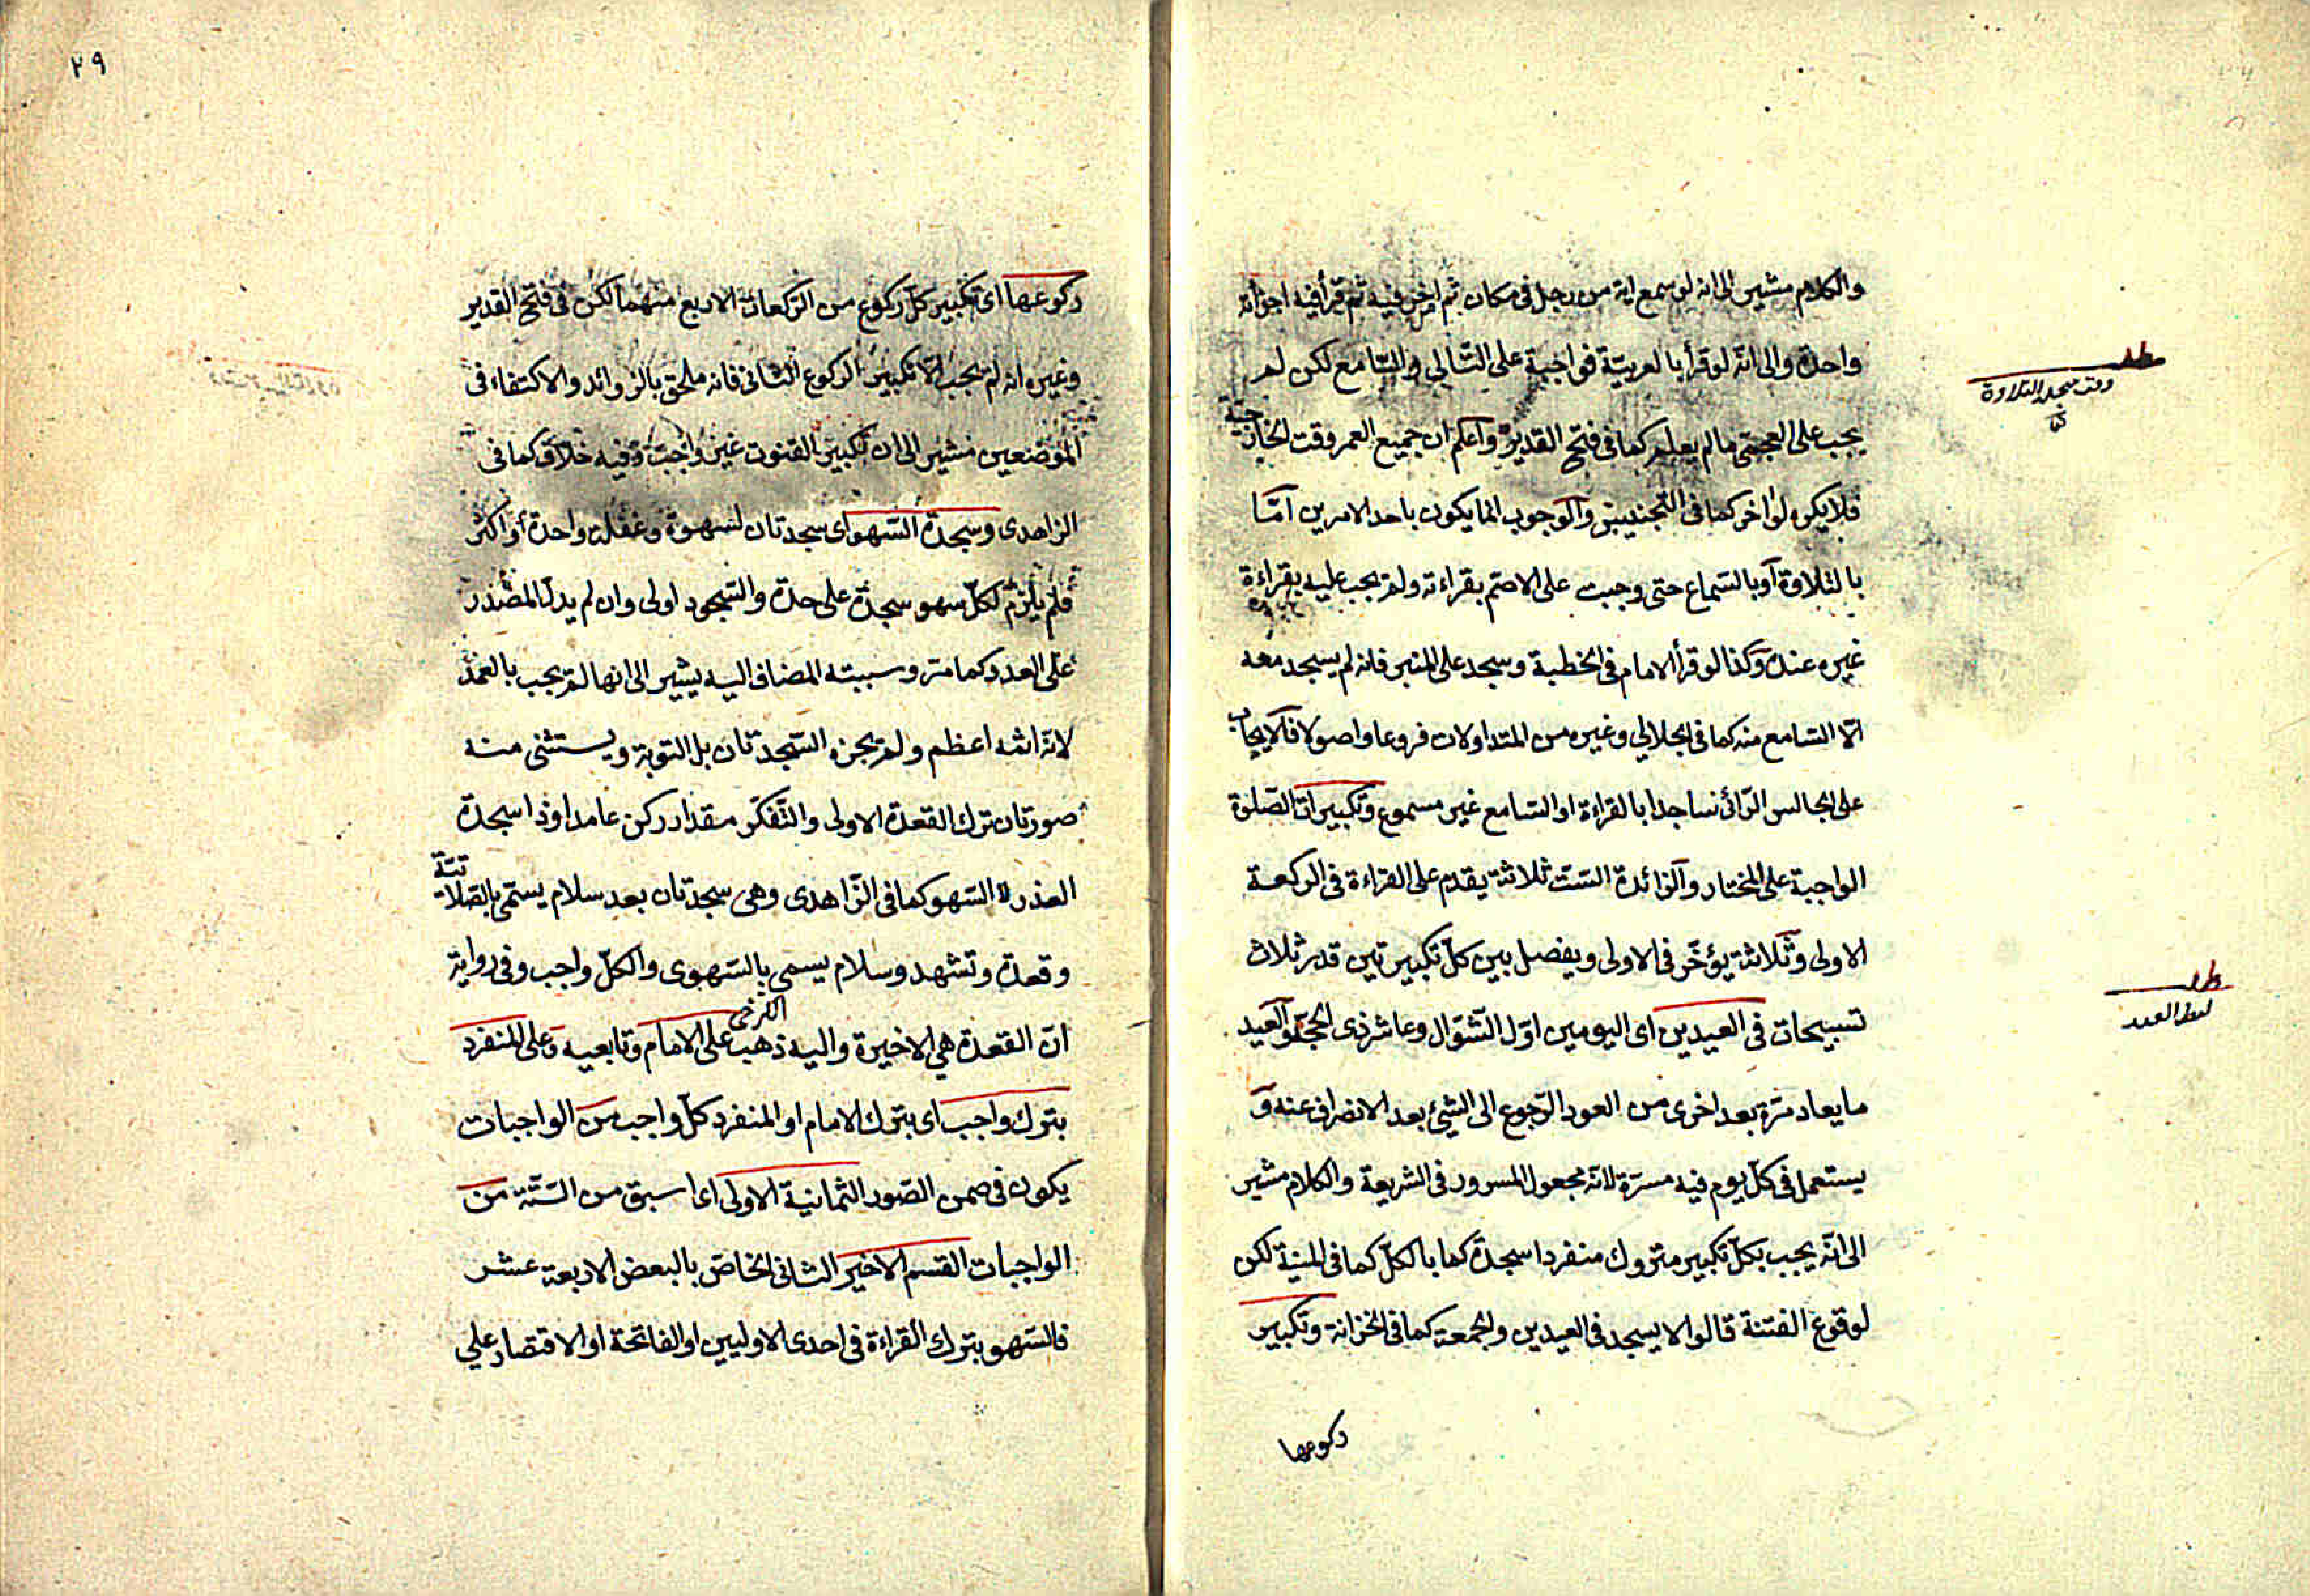 والكلام مشير الى انه لو سمع اية من رجل في مكان ثم اخر فيه ثم قرأ فيه اجزأته
واحدة والى انّه لو قرأ بالعربيّة فواجبة على التّالي والسّامع لكن لم
يجب على العجمي ما لم يعلم كما في فتح القدير واعلم ان جميع العمر وقت الخارجيّة
فلا يكره لو اخر كما في التجنيس والوجوب انما يكون باحد الامرين امّا
بالتلاوة او بالسّماع حتى وجبت على الاصمّ بقراءته ولم يجب عليه بقراءة
غيره عنده وكذا لو قرأ الامام في الخطبة وسجد على المنبر فانه لم يسجد معه
الّا السّامع منه كما في الجلالي وغيره من المتداولات فروعا واصولا فلا يجاب
على الجالس الرّائى ساجدا بالقراءة او السّامع غير مسموع وتكبيرات الصّلوة
الواجبة على المختار والزائدة السّت ثلاثة يقدم على القراءة في الركعة
الاولى وثلاثة يؤخّر في الاولى ويفصل بين كلّ تكبيرتين قدر ثلاث
تسبيحات في العيدين اى اليومين اوّل الشّوّال وعاشر ذى الحجّة والعيد
ما يعاد مرّة بعد اخرى من العود الرّجوع الى الشيئ بعد الانصراف عنه و
يستعمل في كلّ يوم فيه مسرّة لانّه مجعول للسرور في الشريعة والكلام مشير
الى انّه يجب بكلّ تكبير متروك منفردا سجدة كما بالكلّ كما في المنية لكن
لوقوع الفتنة قالوا لا يسجد في العيدين والجمعة كما في الخزانة وتكبير
ركوعها
وقت سجدة التلاوة
لفظ العيد
٢٩
ركوعها اى تكبير كلّ ركوع من الرّكعات الاربع منهما لكن في فتح القدير
وغيره انه لم يجب الّا تكبير الركوع الثّانى فانه ملحق بالزوائد والاكتفاء في
الموضعين مشير الى ان تكبير القنوت غير واجب وفيه خلاف كما في
الزاهدى وسجدة السّهو اى سجدتان لسهوة وغفلة واحدة او اكثر
فلم يلزم لكلّ سهو سجدة على حدة والسّجود اولى وان لم يدلّ المصدر
على العدد كما مرّ وسببيّته المضاف اليه يشير الى انها لم يجب بالعمد
لانّه اثمه اعظم ولم يجزه السّجدتان بل التوبة ويستثنى منه
صورتان ترك القعدة الاولى والتّفكّر مقدار ركن عامدا وذا سجدة
العذر لا السّهو كما في الزّاهدى وهى سجدتان بعد سلام يسمّى بالصّلاتيّة
وقعدة وتشهد وسلام يسمى بالسّهوى والكلّ واجب وفى رواية
انّ القعدة هي الاخيرة واليه ذهب الكرخى على الامام وتابعيه وعلى المنفرد
بترك واجب اى بترك الامام او المنفرد كلّ واجب من الواجبات
يكون في ضمن الصّور الثّمانية الاولى اى ما سبق من السّتّة من
الواجبات القسم الاخير الثّانى الخاصّ بالبعض الاربعة عشر
فالسّهو بترك القراءة في احدى الاوليين او الفاتحة او الاقتصار على